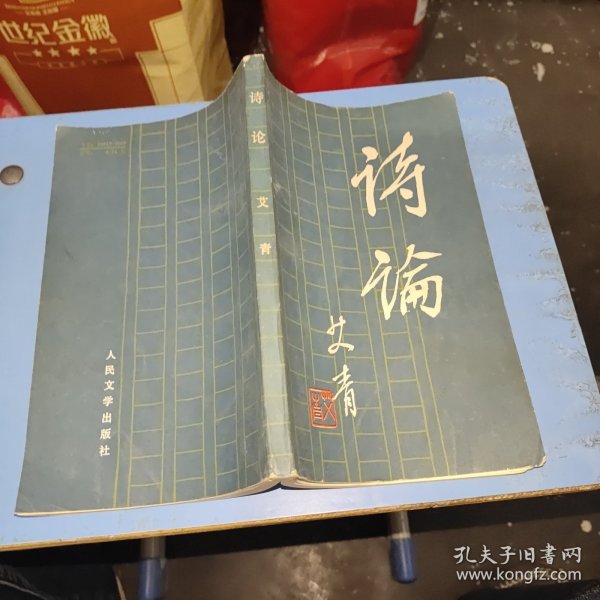 世纪金徽
★★★★
诗论 艾青
诗論
艾青
人民文学出版社
孔夫子旧书网
www.kongfz.com